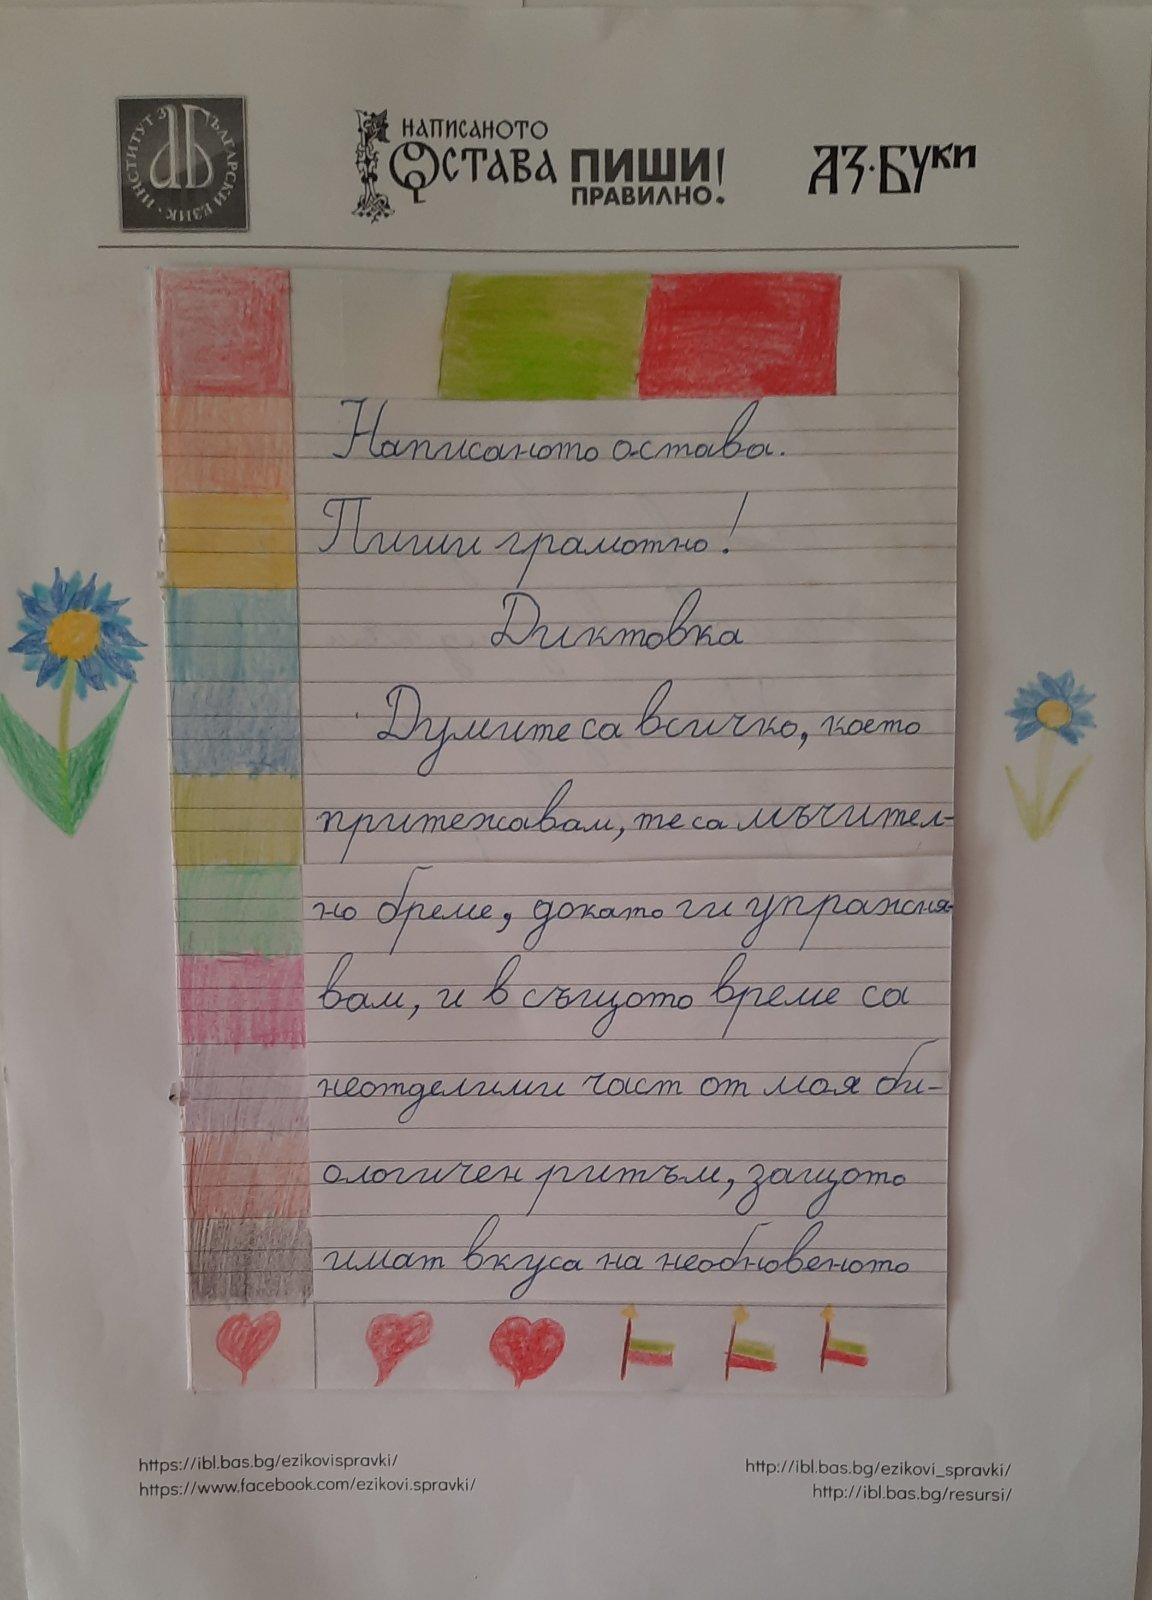 ИНСТИТУТ ЗА БЪЛГАРСКИ ЕЗИК
НАПИСАНОТО
ОСТАВА ПИШИ
ПРАВИЛНО!
АЗ·БУКИ
Написаното остава.
Пиши грамотно!
Диктовка
Думите са всичко, което
притежавам, те са мъчител-
но бреме, докато ги упражня-
вам, и в същото време са
неотделими част от моя би-
ологичен ритъм, защото
имат вкуса на необновеното
https://ibl.bas.bg/ezikovispravki/
https://www.facebook.com/ezikovi.spravki/
http://ibl.bas.bg/ezikovi_spravki/
http://ibl.bas.bg/resursi/